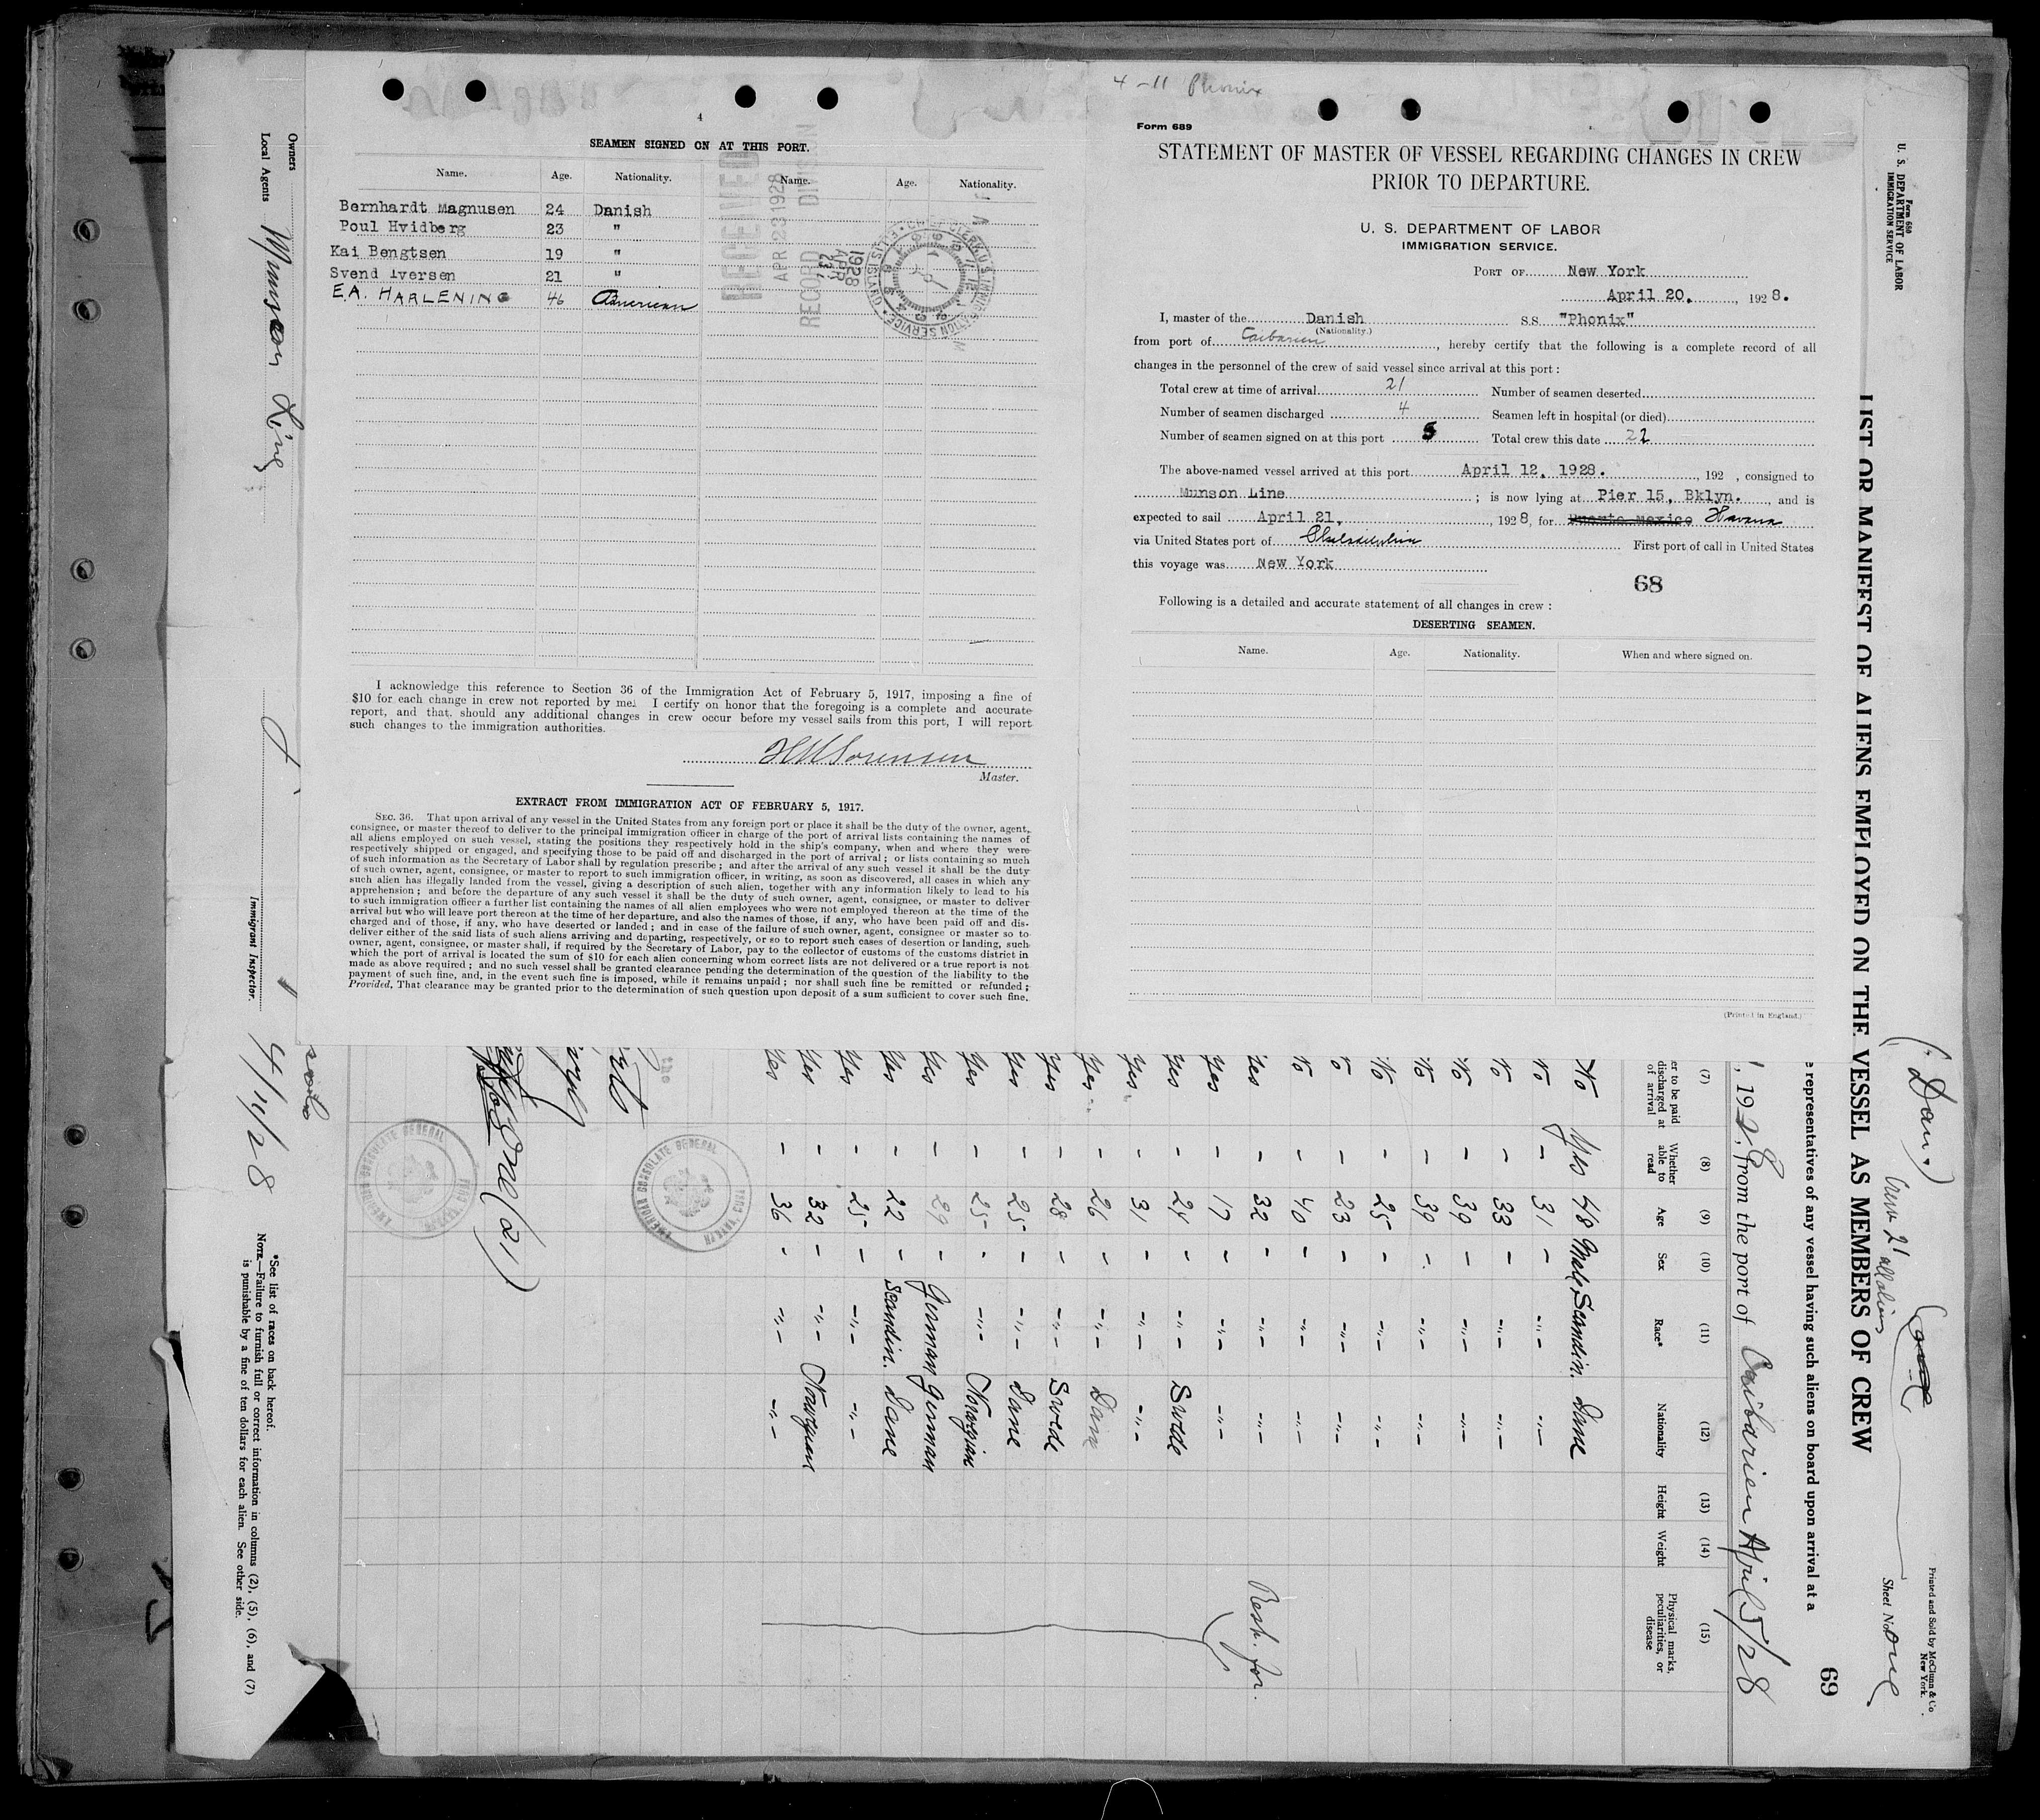 4
SEAMEN SIGNED ON AT THIS PORT.
Name. Age. Nationality. Name. Age. Nationality.
Bernhardt Magnusen 24 Danish
Poul Hvidberg 23 "
Kai Bengtsen 19 "
Svend Iversen 21 "
E.A. HARLENING 46 American
RECEIVED
APR 23 1928
RECORD DIVISION
I acknowledge this reference to Section 36 of the Immigration Act of February 5, 1917, imposing a fine of
$10 for each change in crew not reported by me. I certify on honor that the foregoing is a complete and accurate
report, and that, should any additional changes in crew occur before my vessel sails from this port, I will report
such changes to the immigration authorities.
Sorensen
Master.
EXTRACT FROM IMMIGRATION ACT OF FEBRUARY 5, 1917.
SEC. 36. That upon arrival of any vessel in the United States from any foreign port or place it shall be the duty of the owner, agent,
consignee, or master thereof to deliver to the principal immigration officer in charge of the port of arrival lists containing the names of
all aliens employed on such vessel, stating the positions they respectively hold in the ship's company, when and where they were
respectively shipped or engaged, and specifying those to be paid off and discharged in the port of arrival; or lists containing so much
of such information as the Secretary of Labor shall by regulation prescribe; and after the arrival of any such vessel it shall be the duty
of such owner, agent, consignee, or master to report to such immigration officer, in writing, as soon as discovered, all cases in which any
such alien has illegally landed from the vessel, giving a description of such alien, together with any information likely to lead to his
apprehension; and before the departure of any such vessel it shall be the duty of such owner, agent, consignee, or master to deliver
to such immigration officer a further list containing the names of all alien employees who were not employed thereon at the time of the
arrival but who will leave port thereon at the time of her departure, and also the names of those, if any, who have been paid off and dis-
charged and of those, if any, who have deserted or landed; and in case of the failure of such owner, agent, consignee or master so to
deliver either of the said lists of such aliens arriving and departing, respectively, or so to report such cases of desertion or landing, such
owner, agent, consignee, or master shall, if required by the Secretary of Labor, pay to the collector of customs of the customs district in
which the port of arrival is located the sum of $10 for each alien concerning whom correct lists are not delivered or a true report is not
made as above required; and no such vessel shall be granted clearance pending the determination of the question of the liability to the
payment of such fine, and, in the event such fine is imposed, while it remains unpaid; nor shall such fine be remitted or refunded;
Provided, That clearance may be granted prior to the determination of such question upon deposit of a sum sufficient to cover such fine.
4-11 Phonix
Form 689
STATEMENT OF MASTER OF VESSEL REGARDING CHANGES IN CREW
PRIOR TO DEPARTURE.
U. S. DEPARTMENT OF LABOR
IMMIGRATION SERVICE.
PORT OF New York
April 20, 1928.
I, master of the Danish SS "Phonix"
(Nationality.)
from port of Caibarien, hereby certify that the following is a complete record of all
changes in the personnel of the crew of said vessel since arrival at this port:
Total crew at time of arrival 21 Number of seamen deserted
Number of seamen discharged 4 Seamen left in hospital (or died)
Number of seamen signed on at this port 5 Total crew this date 22
The above-named vessel arrived at this port April 12, 1928. , 192 , consigned to
Munson Line ; is now lying at Pier 15, Bklyn. , and is
expected to sail April 21, , 1928, for Puerto Mexico Havana
via United States port of Philadelphia First port of call in United States
this voyage was New York
68
Following is a detailed and accurate statement of all changes in crew:
DESERTING SEAMEN.
Name. Age. Nationality. When and where signed on.
(Printed in England.)
Form 680
U. S. DEPARTMENT OF LABOR
IMMIGRATION SERVICE
LIST OR MANIFEST OF ALIENS EMPLOYED ON THE VESSEL AS MEMBERS OF CREW
(Dan.)
Crew 21 all aliens
Sheet No. One
Printed and Sold by McClunn & Co
New York.
69
representatives of any vessel having such aliens on board upon arrival at a
, 1928, from the port of Caibarien April 5/28
(7) (8) (9) (10) (11) (12) (13) (14) (15)
er to be paid discharged at of arrival
Whether able to read
Age
Sex
Race*
Nationality
Height
Weight
Physical marks, peculiarities, or disease
No Yes 48 Male Scandin. Dane
No - 31 - -"- -"-
No - 33 - -"- -"-
No - 39 - -"- -"-
No - 39 - -"- -"-
No - 25 - -"- -"-
No - 23 - -"- -"-
No - 40 - -"- -"-
Yes - 32 - -"- -"- Resh. for.
Yes - 17 - -"- -"-
Yes - 24 - -"- Swede
Yes - 31 - -"- -"-
Yes - 26 - -"- Dane
Yes - 28 - -"- Swede
Yes - 25 - -"- Dane
Yes - 25 - -"- Norwgian
Yes - 29 - German German
Yes - 22 - Scandin. Dane
Yes - 25 - -"- -"-
Yes - 32 - -"- Norwgian
Yes - 36 - -"- -"-
AMERICAN CONSULATE GENERAL
AMERICAN CONSULATE GENERAL
One (21)
Owners
Local Agents Munson Line
Immigrant Inspector.
4/11/28
*See list of races on back hereof.
NOTE.—Failure to furnish full or correct information in columns (2), (5), (6), and (7)
is punishable by a fine of ten dollars for each alien. See other side.